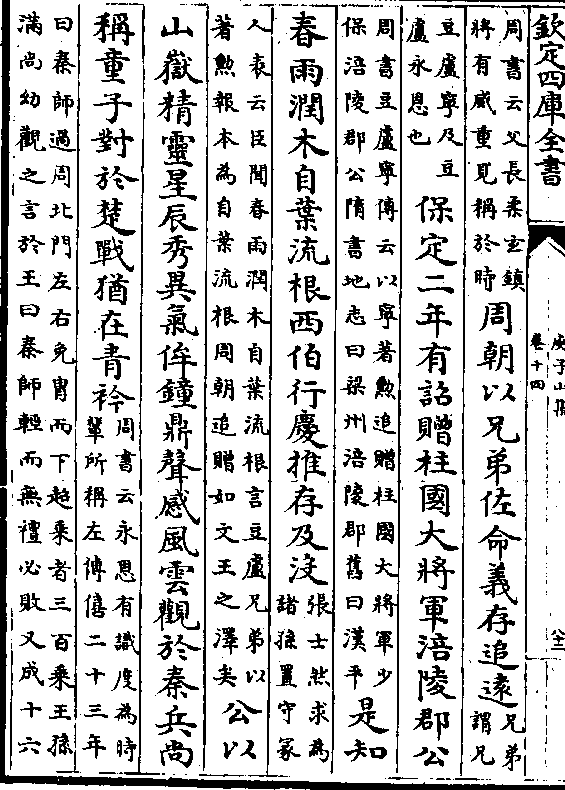 欽定四庫全書
庾子山集
卷十四
周書云父長柔玄鎮
將有威重見稱於時
周朝以兄弟佐命義存追遠
兄弟
謂兄
豆盧寧及豆
盧永恩也
保定二年有詔贈柱國大將軍涪陵郡公
周書豆盧寧傳云以寧著勲追贈柱國大將軍少
保涪陵郡公隋書地志曰梁州涪陵郡舊曰漢平
是知
春雨潤木自葉流根西伯行慶推存及沒
張士然求為
諸孫置守冢
人表云臣聞春雨潤木自葉流根言豆盧兄弟以
著勲報本為自葉流根周朝追贈如文王之澤矣
公以
山嶽精靈星辰秀異氣侔鐘鼎聲感風雲觀於秦兵尚
稱童子對於楚戰猶在青衿
周書云永恩有識度為時
輩所稱左傳僖二十三年
曰秦師過周北門左右免胄而下超乘者三百乘王孫
滿尚幼觀之言於王曰秦師輕而無禮必敗又成十六